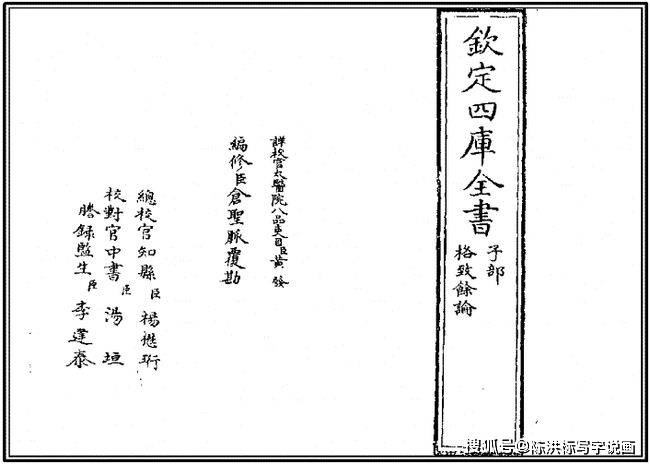 欽定四庫全書
子部
格致餘論
詳校官太醫院八品吏目臣黃發
編修臣倉聖脈覆勘
總校官知縣臣楊懋珩
校對官中書臣湯垣
謄錄監生臣李逢泰
搜狐号@陈洪标写字说画